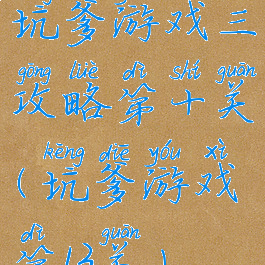 坑爹游戏三
gōng lüè dì shí guān
攻略第十关
kēng diē yóu xì
(坑爹游戏
dì guān
第13关)